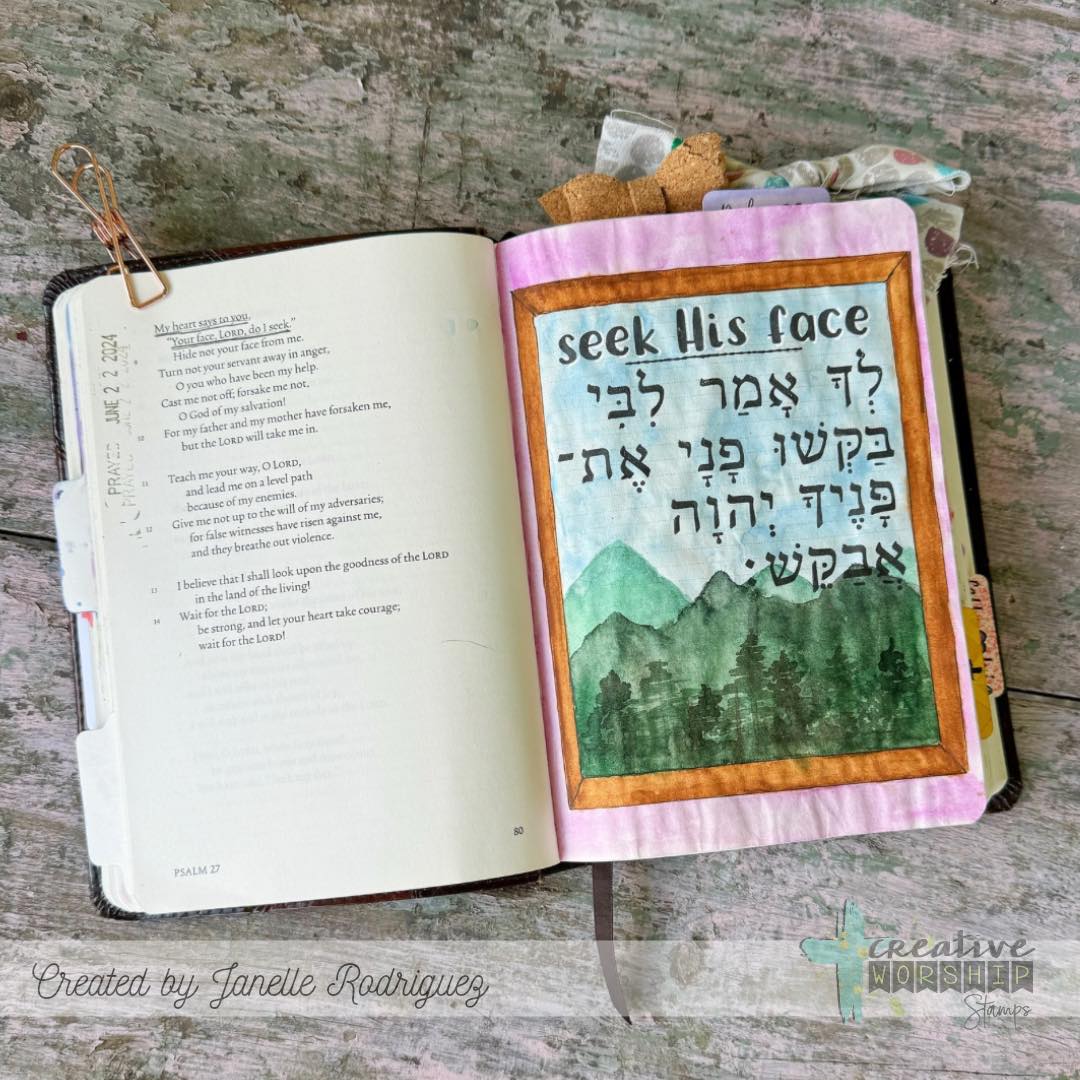 PRAYED JUNE 2 2 2024
My heart says to you,
“Your face, LORD, do I seek.”
Hide not your face from me.
Turn not your servant away in anger,
O you who have been my help.
Cast me not off; forsake me not,
O God of my salvation!
10 For my father and my mother have forsaken me,
but the LORD will take me in.
11 Teach me your way, O LORD,
and lead me on a level path
because of my enemies.
12 Give me not up to the will of my adversaries;
for false witnesses have risen against me,
and they breathe out violence.
13 I believe that I shall look upon the goodness of the LORD
in the land of the living!
14 Wait for the LORD;
be strong, and let your heart take courage;
wait for the LORD!
80
PSALM 27
seek His face
לְךָ אָמַר לִבִּי
בַּקְּשׁוּ פָנָי אֶת־
פָּנֶיךָ יְהוָה
אֲבַקֵּשׁ׃
Created by Janelle Rodriguez
creative
WORSHIP
Stamps